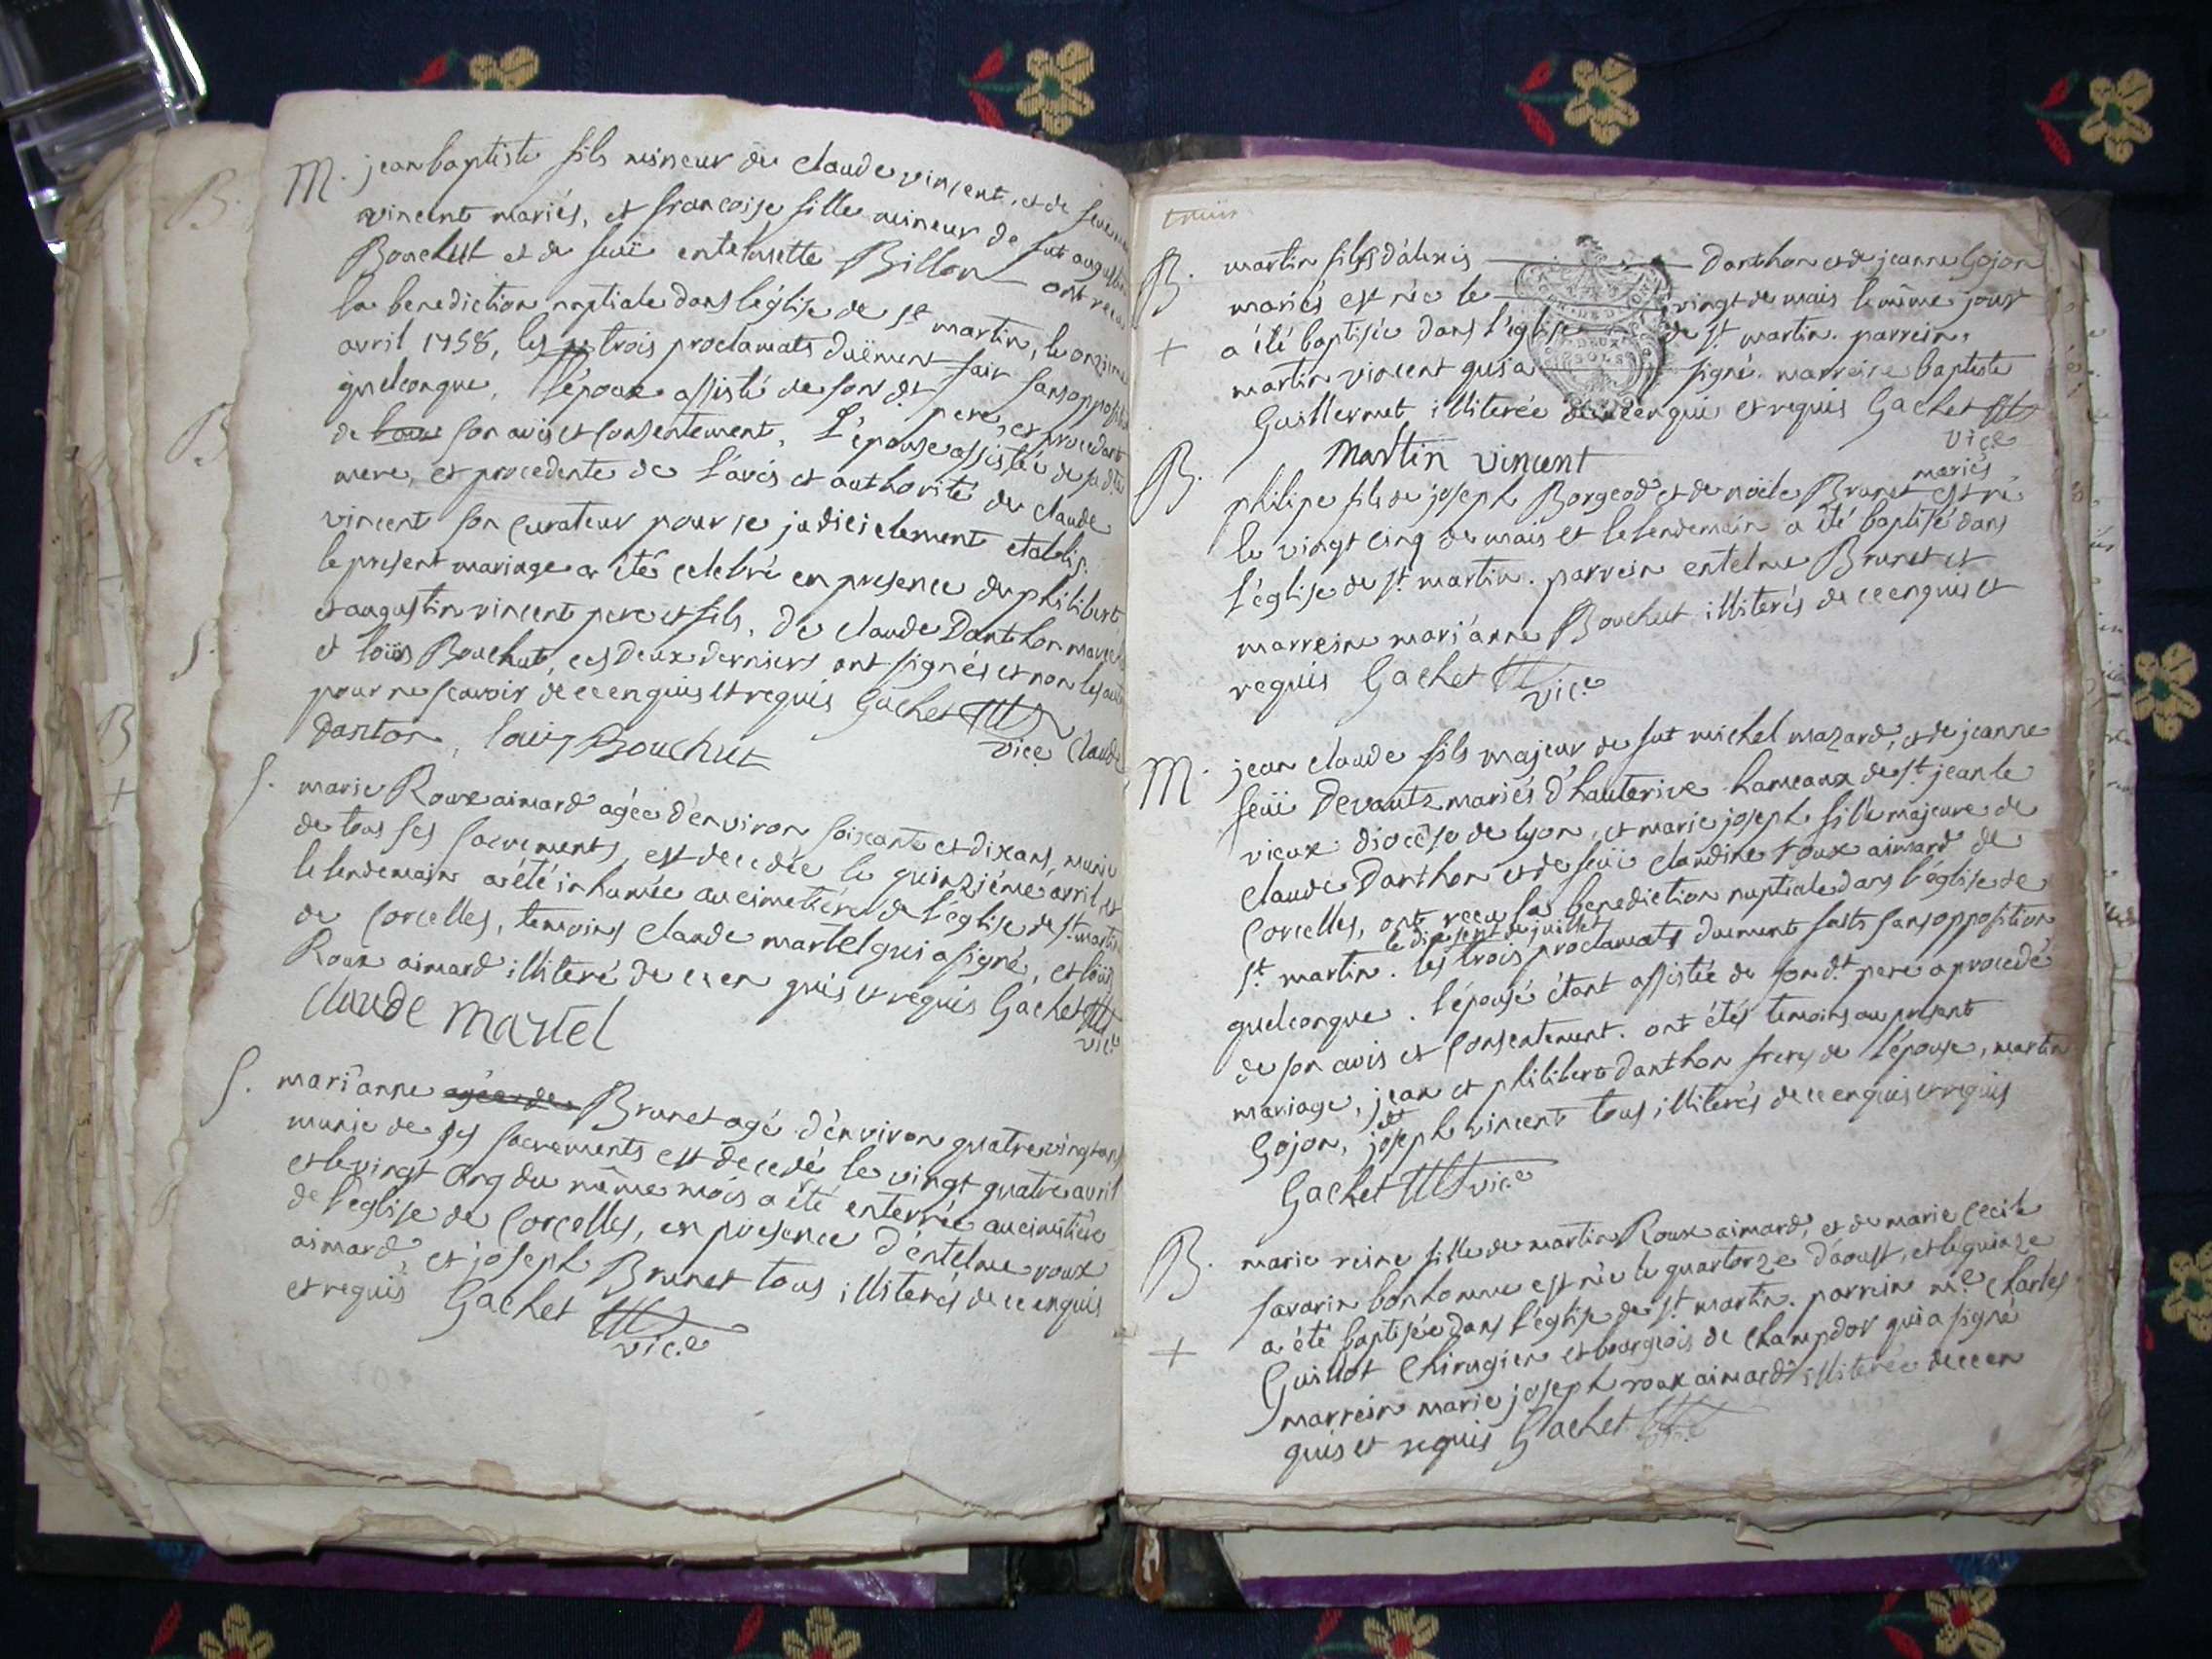 M. jean baptiste fils mineur de Claude vincent, et de feüe
vincent mariés, et francoise fille mineur de fut augustin
Bouchut et de feuë entelmette Billon ont recu
la benediction nuptiale dans l'église de st martin, le onzieme
avril 1758, les trois proclamats duëment fait sans opposition
quelconque, l'époux assisté de son dt pere, et procedant
de son avis et consentement, L'épouse assistée de sa dte
mere, et procedente de l'avis et authorité de claude
vincent son curateur pour ce judicielement etablis.
le present mariage a été celebré en presence de philibert
et augustin vincent pere et fils, de claude Danthon
et loüis Bouchut, ces deux derniers ont signés et non les autres
pour ne scavoir de ce enquis et requis Gachet vice Claude
danton, louis Bouchut
S. marie Roux aimard agée d'environ soixante et dix ans, munie
de tous ses sacrements, est decedée le quinziéme avril et
le lendemain a été inhumée au cimetiére de l'église de st martin
de Corcelles, temoins claude martel qui a signé, et loüis
Roux aimard illiteré de ce en quis et requis Gachet
vice
claude martel
S. mari'anne agée de Brunet agé d'énviron quatre vingt ans
munie de ses sacrements est decedé le vingt quatre avril
et le vingt cinq du même mois a été enterrée au cimetiére
de l'eglise de Corcelles, en présence d'éntelme roux
aimard, et joseph Brunet tous illiterés de ce enquis
et requis Gachet
vice
B. martin fils d'alexis Danthon et de jeanne Gojon
mariés est née le vingt de mais le même jour
+ a été baptisée dans l'église de st martin. parrein,
martin vincent qui a signé. marreine baptiste
Guillermet illiterée de ce enquis et requis Gachet
vice
Martin vincent
mariés
B. philipe fils de joseph Borgeod et de noële Brunet est né
le vingt cinq de mais et le lendemain a été baptisé dans
l'église de st martin. parrein entelme Brunet et
marreine mari'anne Bouchut illiterés de ce enquis et
requis Gachet vice
M. jean claude fils majeur de fut michel mazard, et de jeanne
feuë Devautz mariés d'hauterive hameaux de st jean le
vieux diocèse de lyon, et marie joseph fille majeure de
claude Danthon et de feuë claudine roux aimard de
Corcelles, ont recu la benediction nuptiale dans l'église de
le dixsept de juillet
st martin. les trois proclamats duement faits sans opposition
quelconque. l'épouse étant assistée de son dt pere a procedé
de son avis et consentement. ont étés temoins au present
mariage, jean et philibert danthon freres de l'épouse, martin
Gojon, et joseph vincent tous illiterés de ce enquis et requis
Gachet vice
B. marie reine fille de martin Roux aimard, et de marie Cecile
savarin bonhomme est née le quartorze d'aoust, et le quinze
a été baptisée dans l'église de st martin. parrein me charles
+ Guillot Chirugien et bourgeois de Champdor qui a signé
marrein marie joseph roux aimard illiterée de ce en
quis et requis Gachet vice